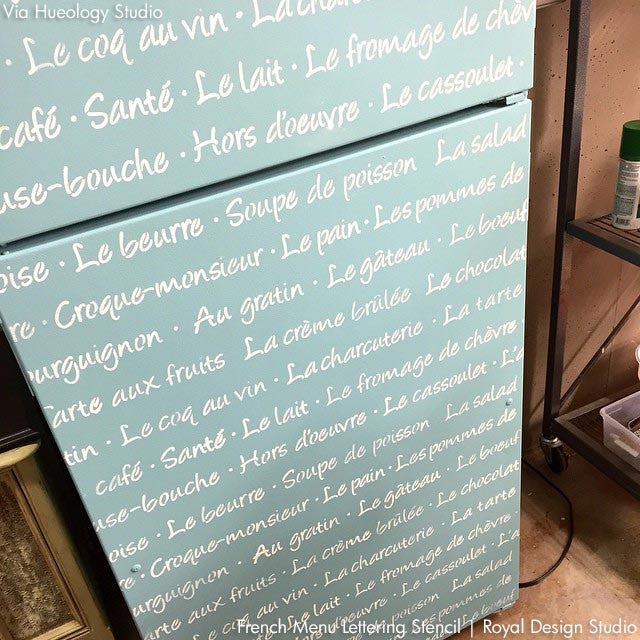 Via Hueology Studio
· Le coq au vin · La charcu
café · Santé · Le lait · Le fromage de chèv
use-bouche · Hors d'oeuvre · Le cassoulet ·
oise · Le beurre · Soupe de poisson La salad
re · Croque-monsieur · Le pain · Les pommes de
urguignon · Au gratin · Le gâteau · Le boeuf
arte aux fruits La crème brûlée Le chocolat
tin · Le coq au vin · La charcuterie · La tarte
café · Santé · Le lait · Le fromage de chèvre
use-bouche · Hors d'oeuvre · Le cassoulet · L'a
oise · Le beurre · Soupe de poisson La salad
re · Croque-monsieur · Le pain · Les pommes de
urguignon · Au gratin · Le gâteau · Le boeuf
arte aux fruits · La crème brûlée · Le chocolat
tin · La charcuterie · La tarte
Le lait · Le fromage de chèvre
Le cassoulet · L'a
La salad
Les pommes de
Le boeuf
French Menu Lettering Stencil | Royal Design Studio